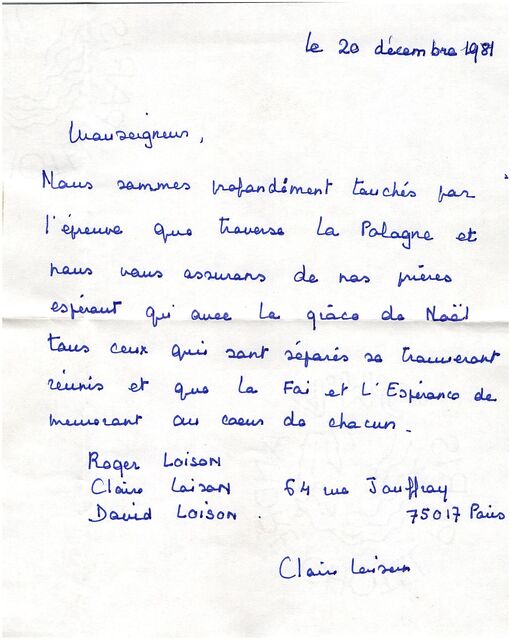 le 20 décembre 1981
Monseigneur,
Nous sommes profondément touchés par
l'épreuve que traverse la Pologne et
nous vous assurons de nos prières
espérant qu'avec la grâce de Noël
tous ceux qui sont séparés se trouveront
réunis et que la Foi et L'Espérance de
meurerant au coeur de chacun.
Roger LOISON
Claire LOISON 64 rue Jouffroy
David LOISON. 75017 Paris
Claire Loison